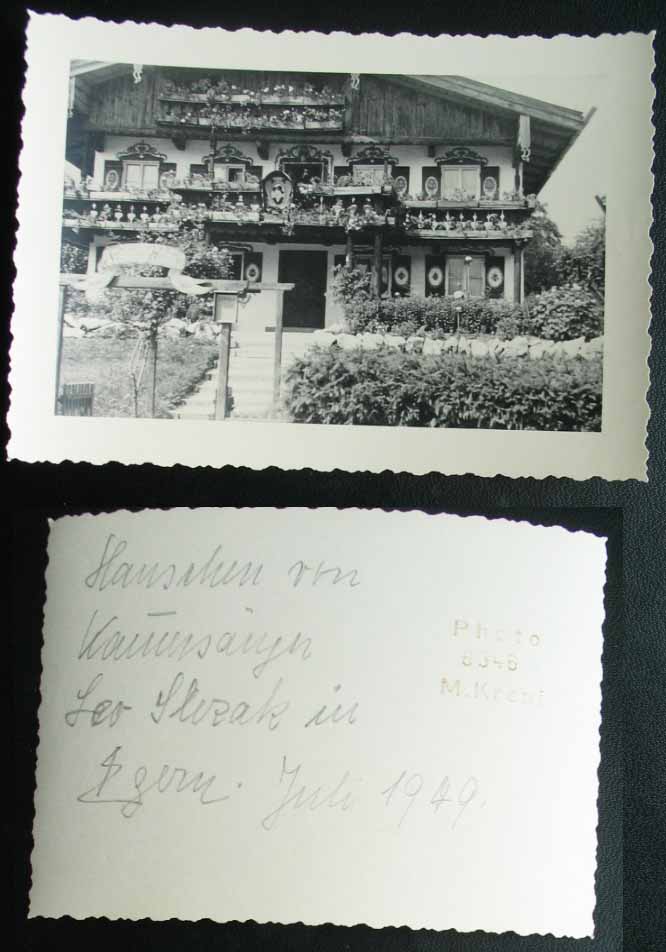 Häuschen von
Kam̅ersänger
Leo Slezak in
Egern. Juli 1949.
Photo
M. Krepf